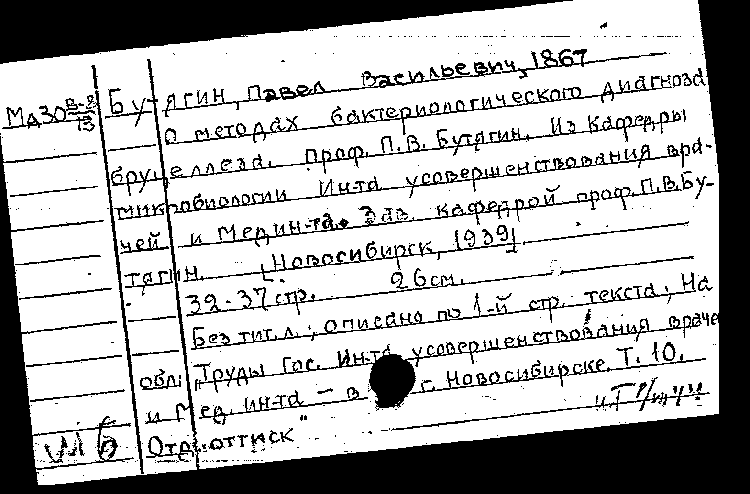 Бутягин, Павел Васильевич, 1867
Мд30 В-8/13
О методах бактериологического диагноза
бруцеллеза. Проф. П.В. Бутягин. Из кафедры
микробиологии Ин-та усовершенствования вра-
чей и Медин-та. Зав. кафедрой проф. П.В. Бу-
тягин. [Новосибирск, 1939].
32-37 стр. 26 см.
Без тит. л.; описано по 1-й стр. текста; На
обл: "Труды Гос. Ин-та усовершенствования враче
и Мед. ин-та - в г. Новосибирске. Т. 10.
Отд. оттиск"